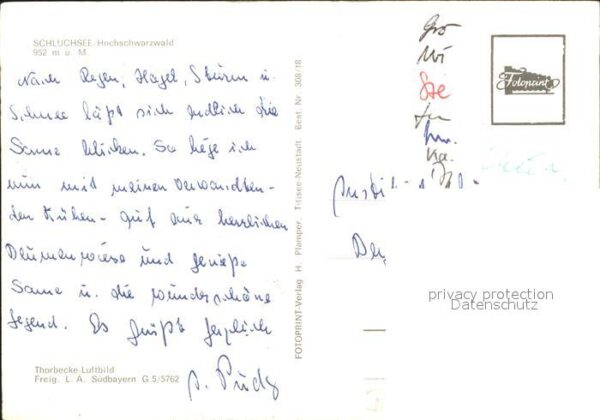 SCHLUCHSEE/Hochschwarzwald
952 m ü. M.
Nach Regen, Hagel, Sturm u.
Schnee läßt sich endlich die
Sonne blicken. So liege ich
nun mit meinen Verwandten-
den Kühen - auf einer herrlichen
Blumenwiese und genieße
Sonne u. die wunderschöne
Gegend. Es grüßt herzlich
Thorbecke-Luftbild
Freig. L. A. Südbayern G 5/5762
FOTOPRINT-Verlag H. Plamper, Titisee-Neustadt. Best. Nr. 308/18
Grö
Wi
Ste
Ka.
Fotoprint
privacy protection
Datenschutz